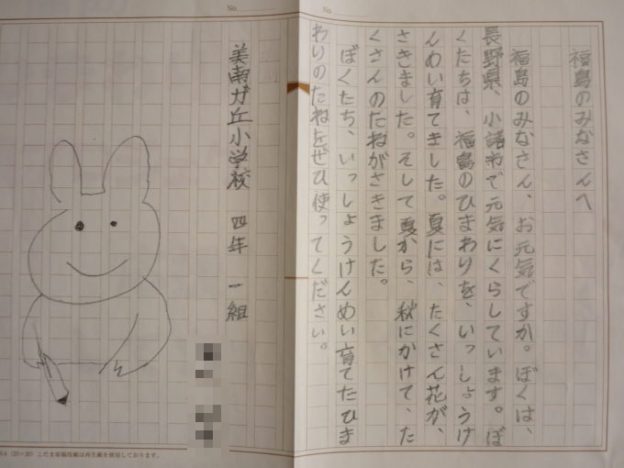 No.
No.
福島のみなさんへ
福島のみなさん、お元気ですか。ぼくは、
長野県、小諸市で元気にくらしています。ぼ
くたちは、福島のひまわりを、いっしょうけ
んめい育てました。夏には、たくさん花が、
さきました。そして夏から、秋にかけて、た
くさんのたねがさきました。
ぼくたち、いっしょうけんめい育てたひま
わりのたねをぜひ使ってください。
美南ガ丘小学校 四年 一組
(20×20) この原稿用紙は再生紙を使用しております。